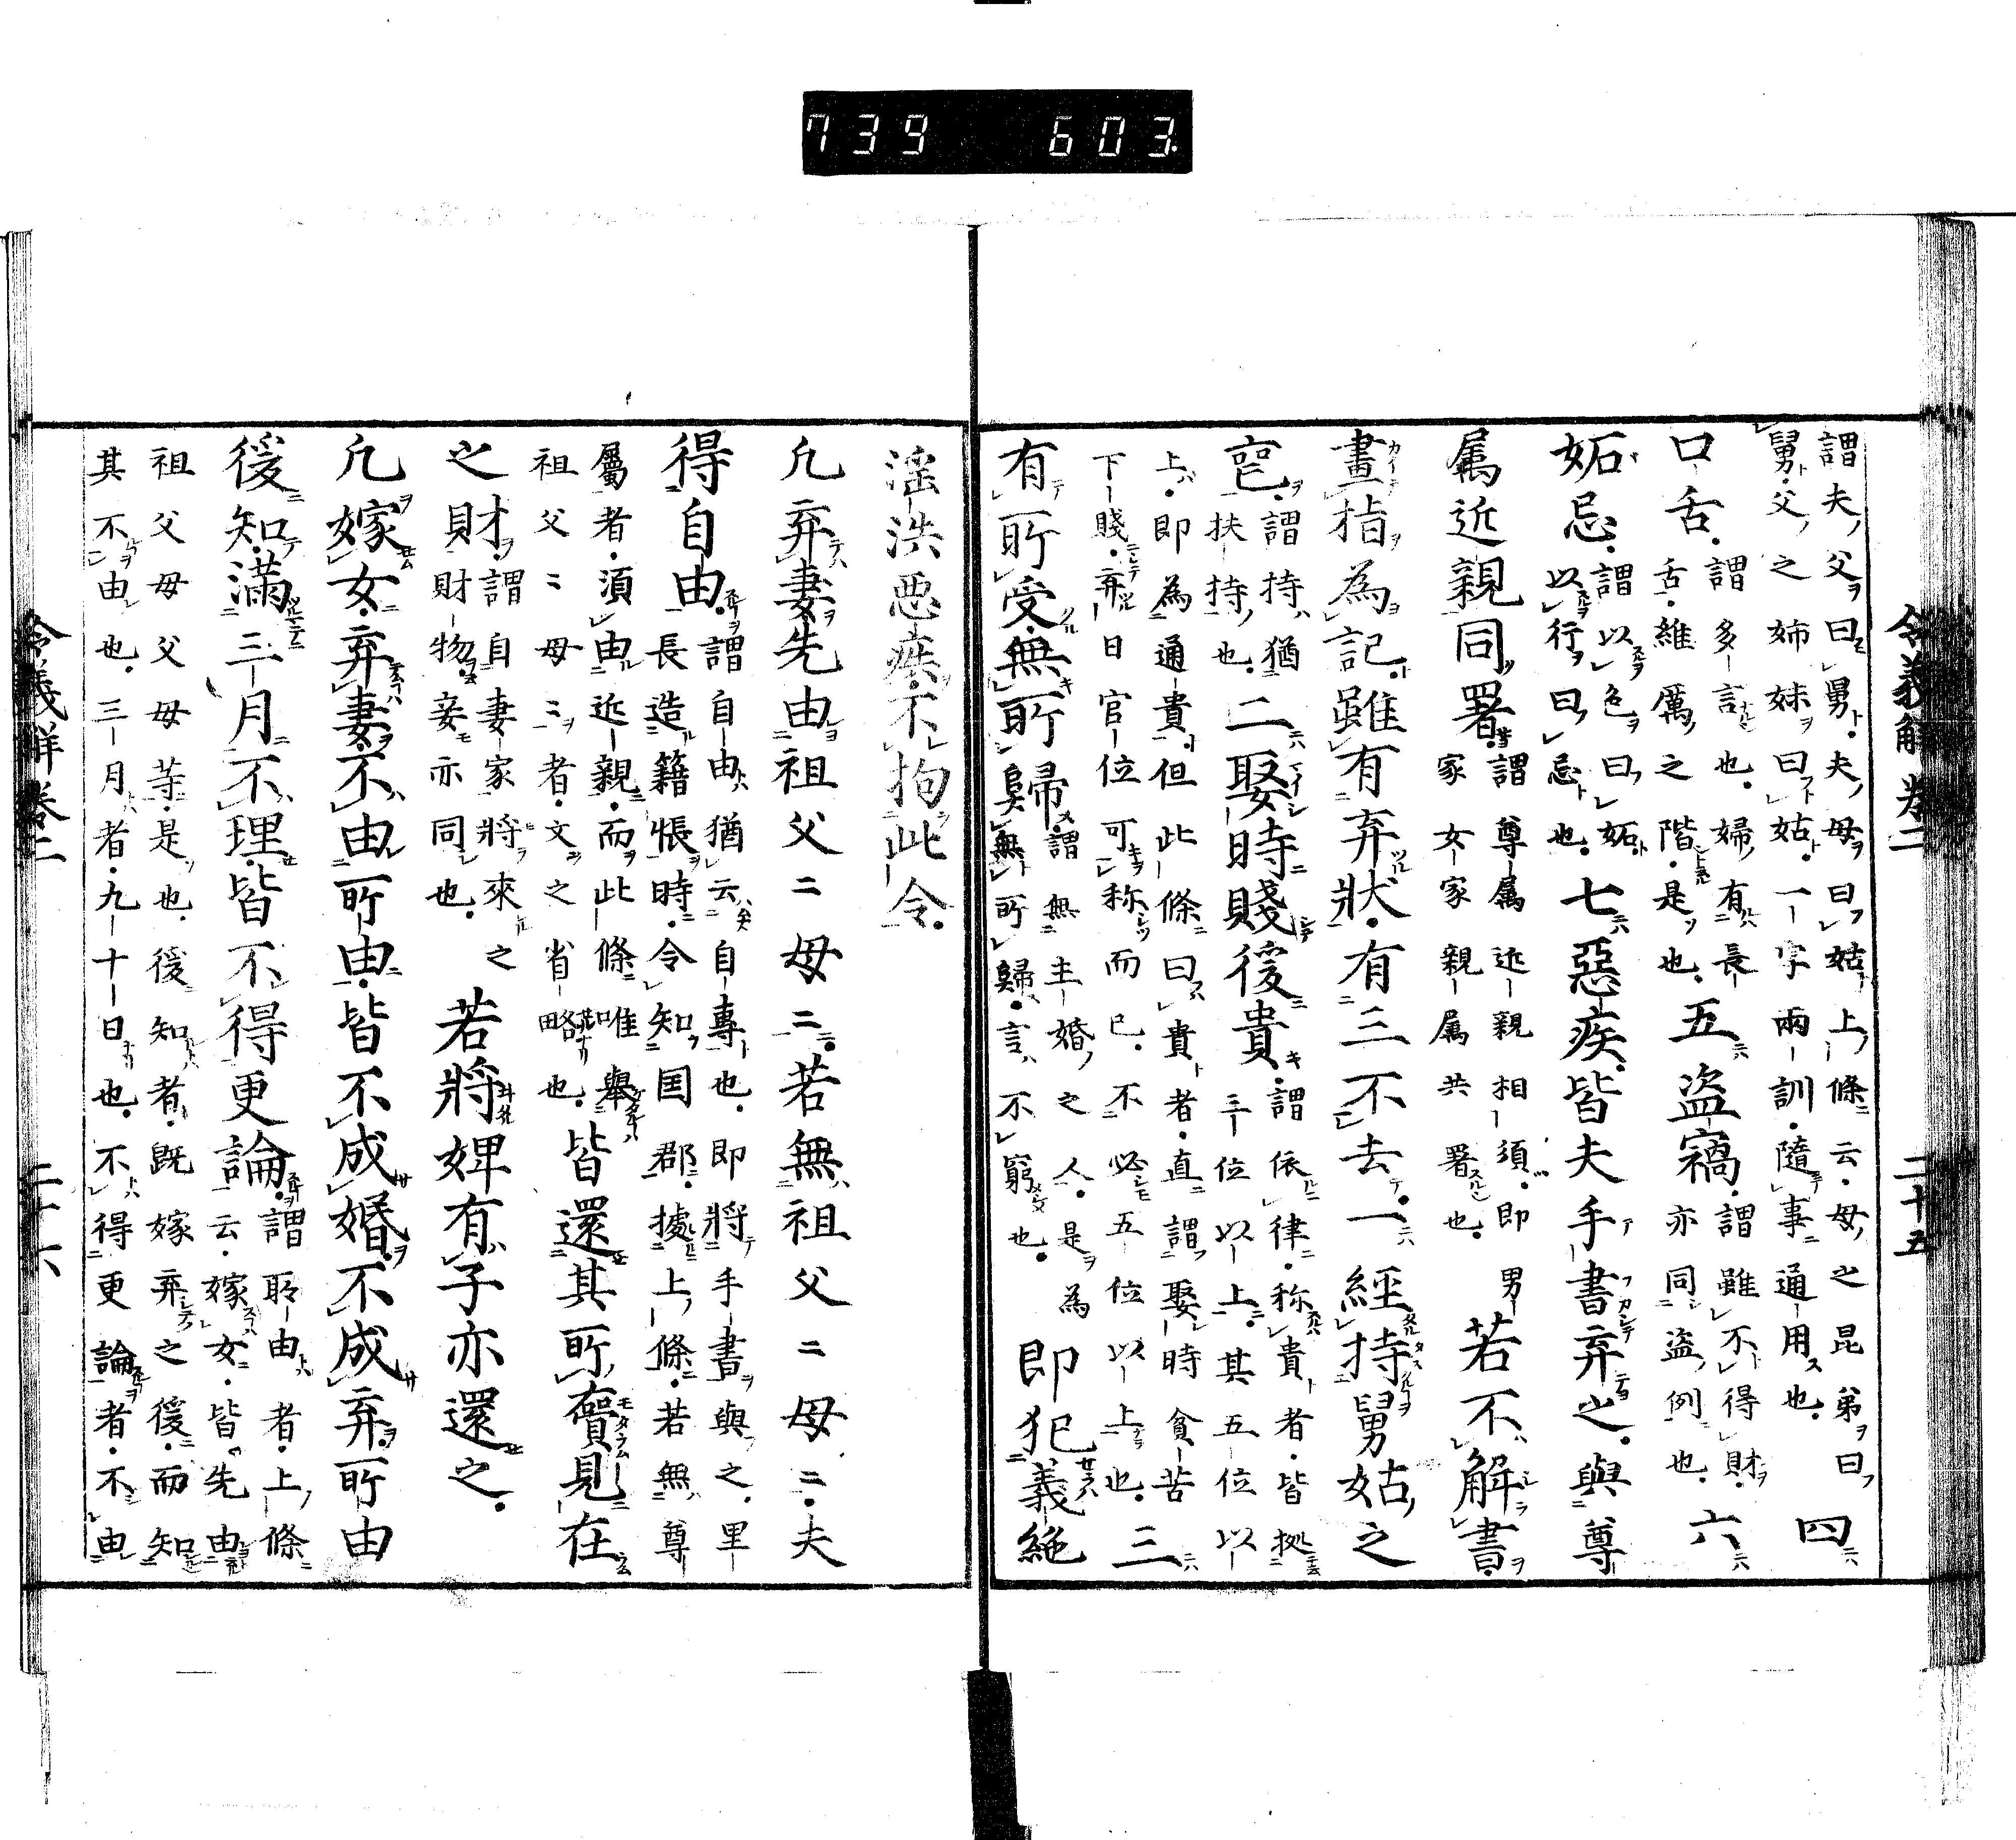 739 603
令義解 卷二 二十五
謂夫父曰舅夫母曰姑上條云母之昆弟曰
舅父之姉妹曰姑一字兩訓隨事通用也 四
口舌 謂多言也婦有長舌維厲之階是也 五盜竊 謂雖不得財亦同盜例也 六
妬忌 謂以色曰妬以行曰忌也 七惡疾皆夫手書弃之與尊
属近親同署 謂尊属近親相須即男家女家親属共署也 若不解書
畫指為記雖有弃狀有三不去一經持舅姑之
䘮 謂持猶扶持也 二娶時賤後貴 謂依律称貴者皆拠三位以上其五位以
上即為通貴但此條曰貴者直謂娶時貪苦
下賤弃日官位可称而已不必五位以上也 三
有所受無所歸 謂無主婚之人是為無所歸言不窮也 即犯義絶
淫泆惡疾不拘此令
凢弃妻先由祖父二母二若無祖父二母二夫
得自由 謂自由猶云自專也即將手書與之里長造籍帳時令知国郡據上條若無尊
屬者須由近親而此條唯舉
祖父二母二者文之省略也 皆還其所賷見在
之財 謂自妻家將來之財物妾亦同也 若將婢有子亦還之
凢嫁女弃妻不由所由皆不成婚不成弃所由
後知滿三月不理皆不得更論 謂所由者上條云嫁女皆先由
祖父母父母等是也後知者既嫁弃之後而知
其不由也三月者九十日也不得更論者不由
令義解卷二 二十六